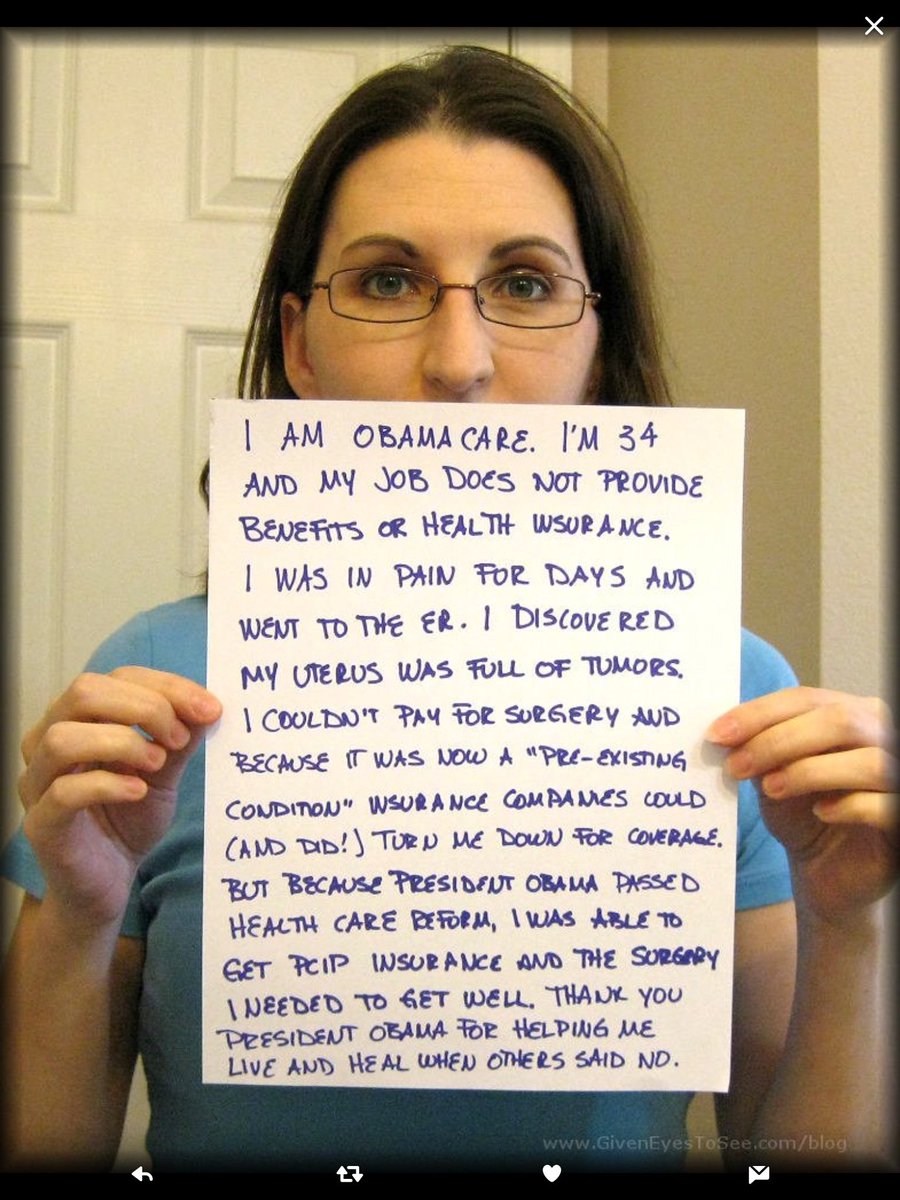 I AM OBAMACARE. I'M 34
AND MY JOB DOES NOT PROVIDE
BENEFITS OR HEALTH INSURANCE.
I WAS IN PAIN FOR DAYS AND
WENT TO THE ER. I DISCOVERED
MY UTERUS WAS FULL OF TUMORS.
I COULDN'T PAY FOR SURGERY AND
BECAUSE IT WAS NOW A "PRE-EXISTING
CONDITION" INSURANCE COMPANIES COULD
(AND DID!) TURN ME DOWN FOR COVERAGE.
BUT BECAUSE PRESIDENT OBAMA PASSED
HEALTH CARE REFORM, I WAS ABLE TO
GET PCIP INSURANCE AND THE SURGERY
I NEEDED TO GET WELL. THANK YOU
PRESIDENT OBAMA FOR HELPING ME
LIVE AND HEAL WHEN OTHERS SAID NO.
www.GivenEyesToSee.com/blog